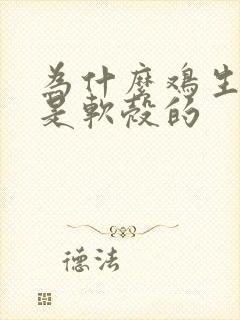 為什麼鸡生
是軟殼的
德法